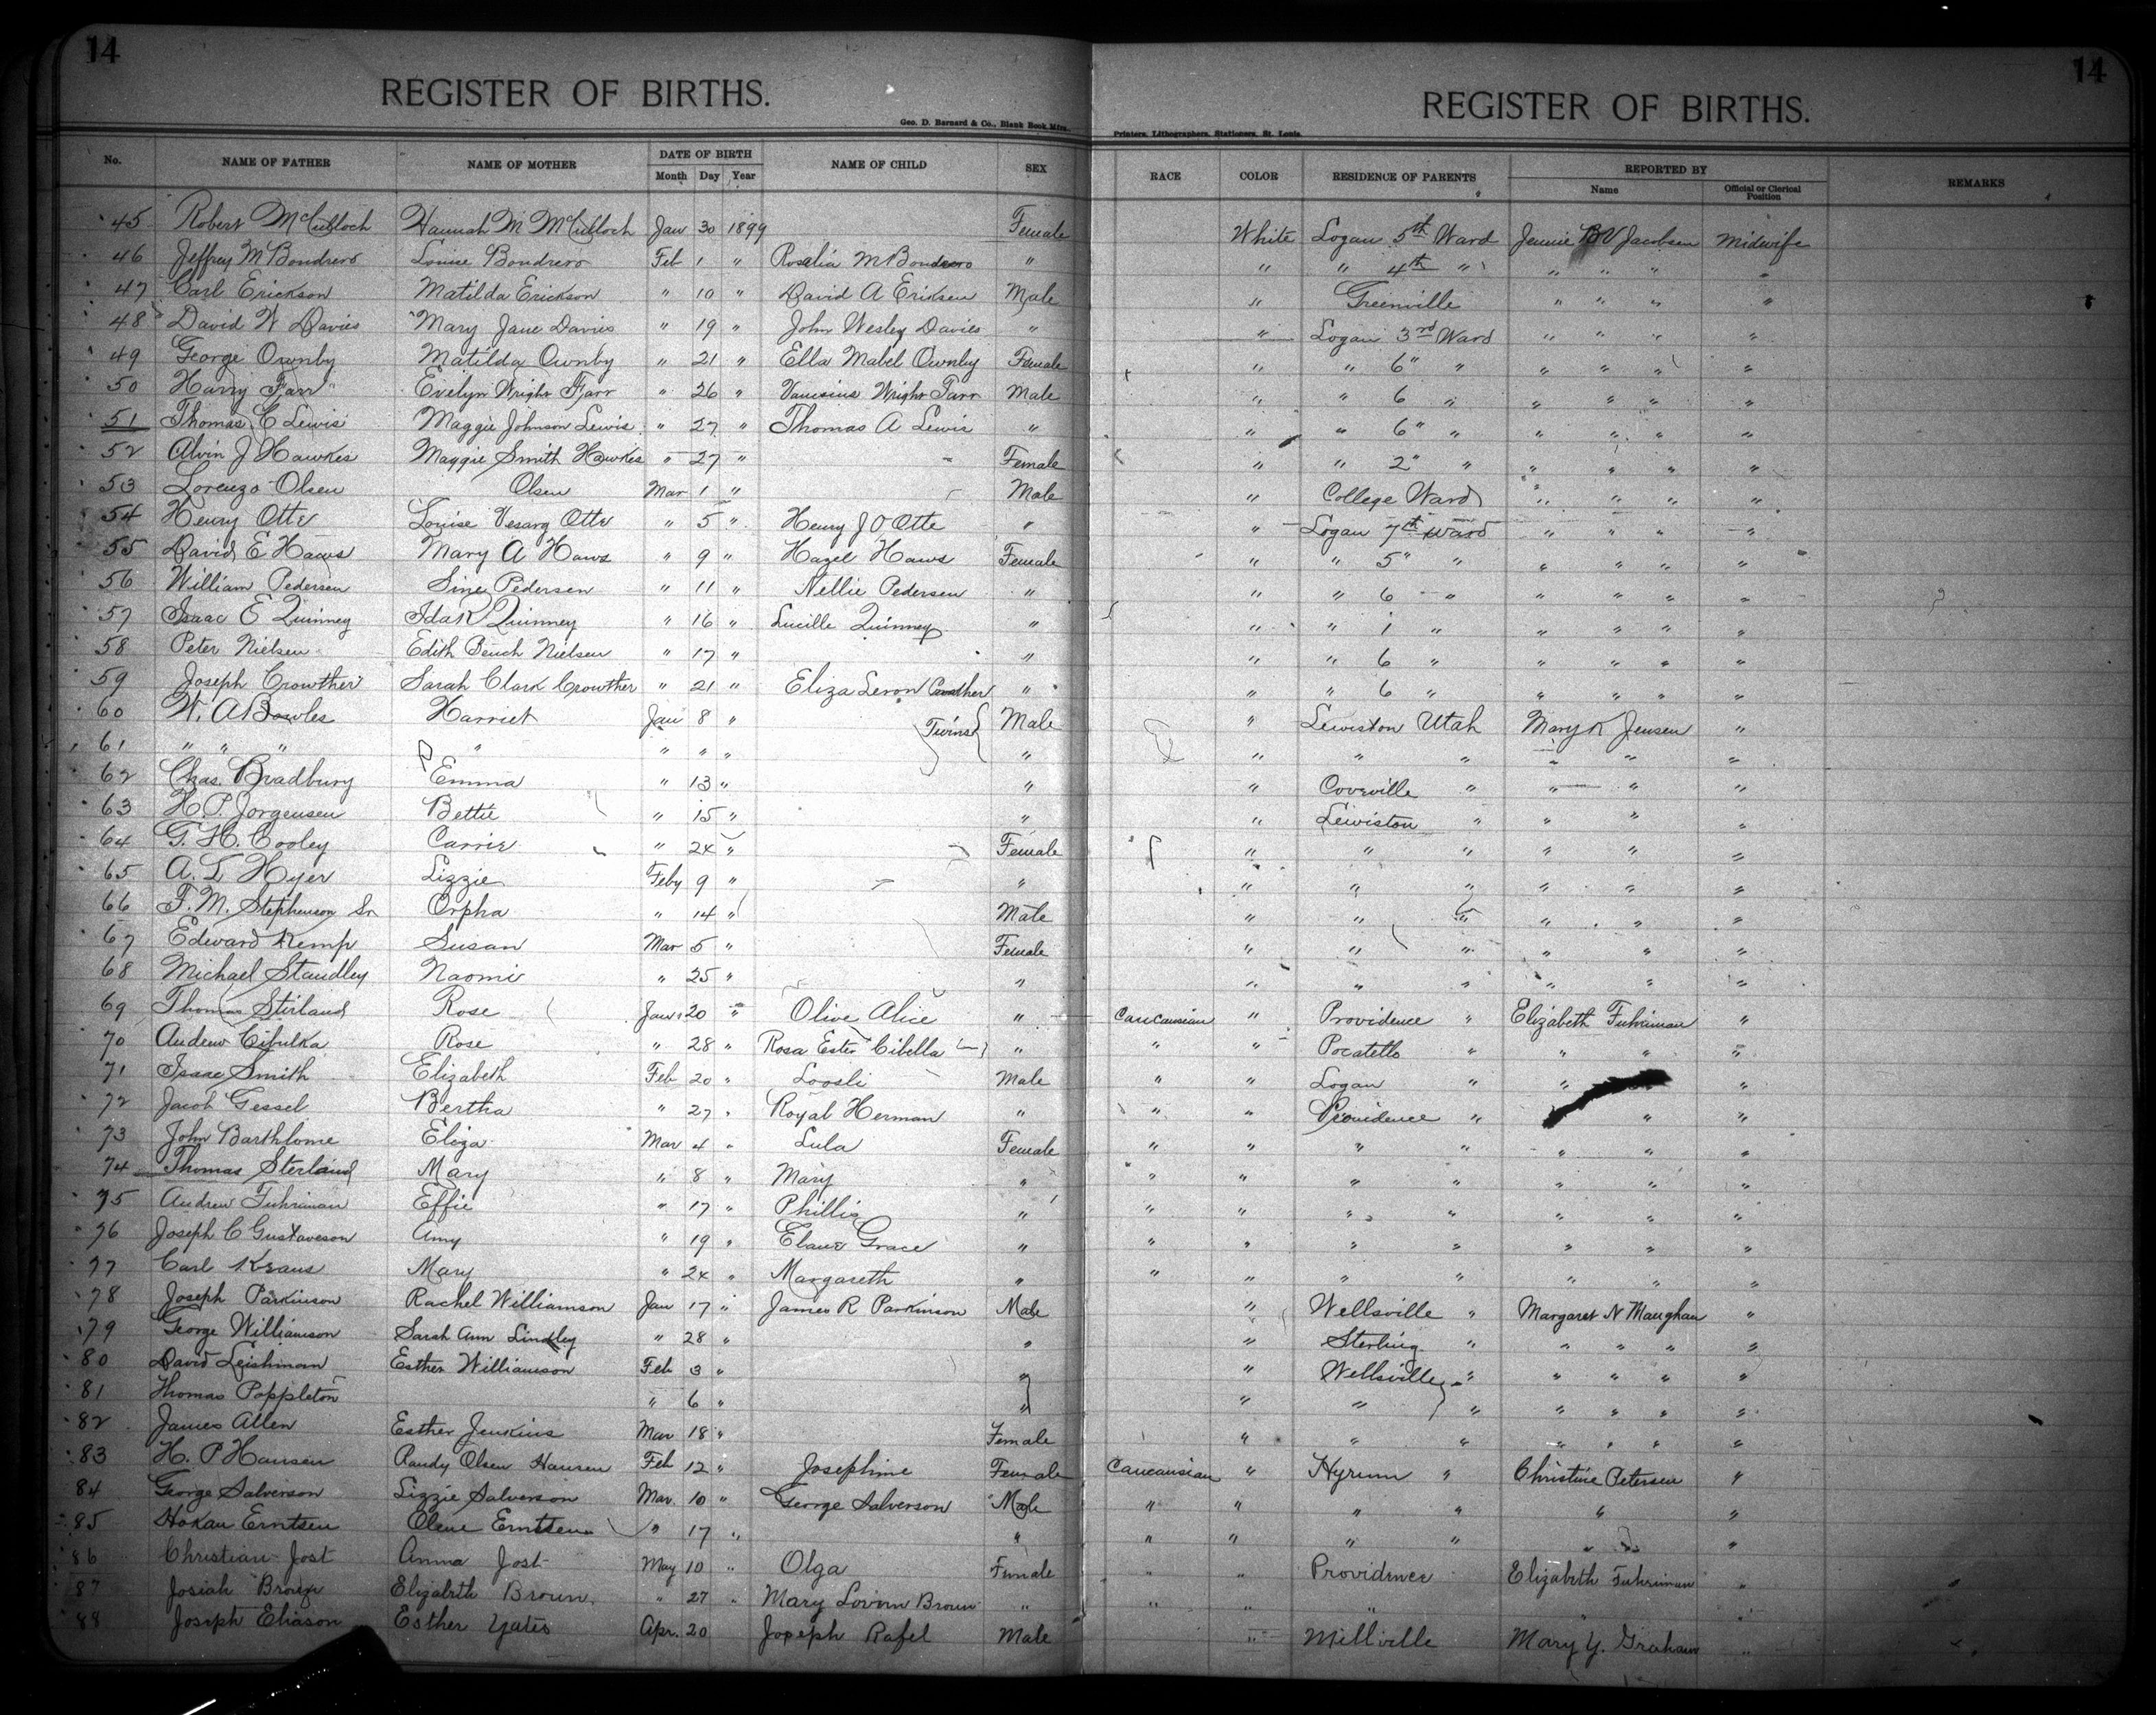 14
14
REGISTER OF BIRTHS.
REGISTER OF BIRTHS.
Geo. D. Barnard & Co., Blank Book Mfrs.
Printers, Lithographers, Stationers, St. Louis.
No. NAME OF FATHER NAME OF MOTHER DATE OF BIRTH Month Day Year NAME OF CHILD SEX RACE COLOR RESIDENCE OF PARENTS REPORTED BY Name Official or Clerical Position REMARKS
45 Robert McCulloch Hannah M McCulloch Jan 30 1899 Female White Logan 5th Ward Jennie Jacobsen Midwife
46 Jeffrey M Bondrero Louise Bondrero Feb 1 " Rosalia M Bondrero " " " 4th " " " " "
47 Carl Erickson Matilda Erickson " 10 " David A Eriksen Male " Greenville " " " "
48 David W Davies Mary Jane Davies " 19 " John Wesley Davies " " Logan 3rd Ward " " " "
49 George Ownby Matilda Ownby " 21 " Ella Mabel Ownby Female " " 6" " " " " "
50 Harry Farr Evelyn Wright Farr " 26 " Wright Farr Male " " 6 " " " " "
51 Thomas C Lewis Maggie Johnson Lewis " 27 " Thomas A Lewis " " " 6" " " " " "
52 Alvin J Hawkes Maggie Smith Hawkes " 27 " Female " " 2" " " " " "
53 Lorenzo Olsen Olsen Mar 1 " Male " College Ward " " " "
54 Henry Otte Louise Otte " 5 " Henry J O Otte " " Logan 7th Ward " " " "
55 David E Haws Mary A Haws " 9 " Hazel Haws Female " " 5" " " " " "
56 William Pedersen Sine Pedersen " 11 " Nellie Pedersen " " " 6 " " " " "
57 Isaac E Quinney Ida R Quinney " 16 " Lucille Quinney " " " 1 " " " " "
58 Peter Nielsen Edith Bench Nielsen " 17 " " " " 6 " " " " "
59 Joseph Crowther Sarah Clark Crowther " 21 " Eliza Leron Crowther " " " 6 " " " " "
60 W. A Bowles Harriet Jan 8 " Twins Male " Lewiston Utah Mary K Jensen "
61 " " " " " " " " " " " " " "
62 Chas. Bradbury Emma " 13 " " " Coveville " " " "
63 H. P. Jorgensen Bettie " 15 " " " Lewiston " " " "
64 G. H. Cooley Carrie " 24 " Female " " " " " "
65 A. L Hyer Lizzie Feby 9 " " " " " " " "
66 F. M. Stephenson Sr Orpha " 14 " Male " " " " " "
67 Edward Kemp Susan Mar 5 " Female " " " " " "
68 Michael Standley Naomi " 25 " " " " " " " "
69 Thomas Stirland Rose Jan 20 " Olive Alice " Caucausian " Providence " Elizabeth Fuhriman "
70 Andrew Cifulka Rose " 28 " Rosa Ester Cibella " " " Pocatello " " " "
71 Isaac Smith Elizabeth Feb 20 " Loosli Male " " Logan " " "
72 Jacob Gessel Bertha " 27 " Royal Herman " " " Providence " " "
73 John Barthlome Eliza Mar 4 " Lula Female " " " " " " "
74 Thomas Sterland Mary " 8 " Mary " " " " " " " "
75 Andrew Fuhriman Effie " 17 " Phillis " " " " " " " "
76 Joseph C Gustaveson Amy " 19 " Grace " " " " " " " "
77 Carl Kraus Mary " 24 " Margareth " " " " " " " "
78 Joseph Parkinson Rachel Williamson Jan 17 " James R Parkinson Male " Wellsville " Margaret N Maughan "
79 George Williamson Sarah Ann Lindley " 28 " " " Sterling " " " " "
80 David Leishman Esther Williamson Feb 3 " " " Wellsville " " " " "
81 Thomas Poppleton " 6 " " " " " " " " "
82 James Allen Esther Jenkins Mar 18 " Female " " " " " " "
83 H. P Hansen Randy Olsen Hansen Feb 12 " Josephine Female Caucausian " Hyrum " Christine Petersen "
84 George Salverson Lizzie Salverson Mar. 10 " George Salverson Male " " " " " "
85 Hokan Erntsen Olene Erntsen " 17 " " " " " " " "
86 Christian Jost Anna Jost May 10 " Olga Female " " Providence Elizabeth Fuhriman "
87 Josiah Brown Elizabeth Brown " 27 " Mary Brown " " " " " "
88 Joseph Eliason Esther Yates Apr. 20 Joseph Rafel Male " Millville Mary Y. Graham "